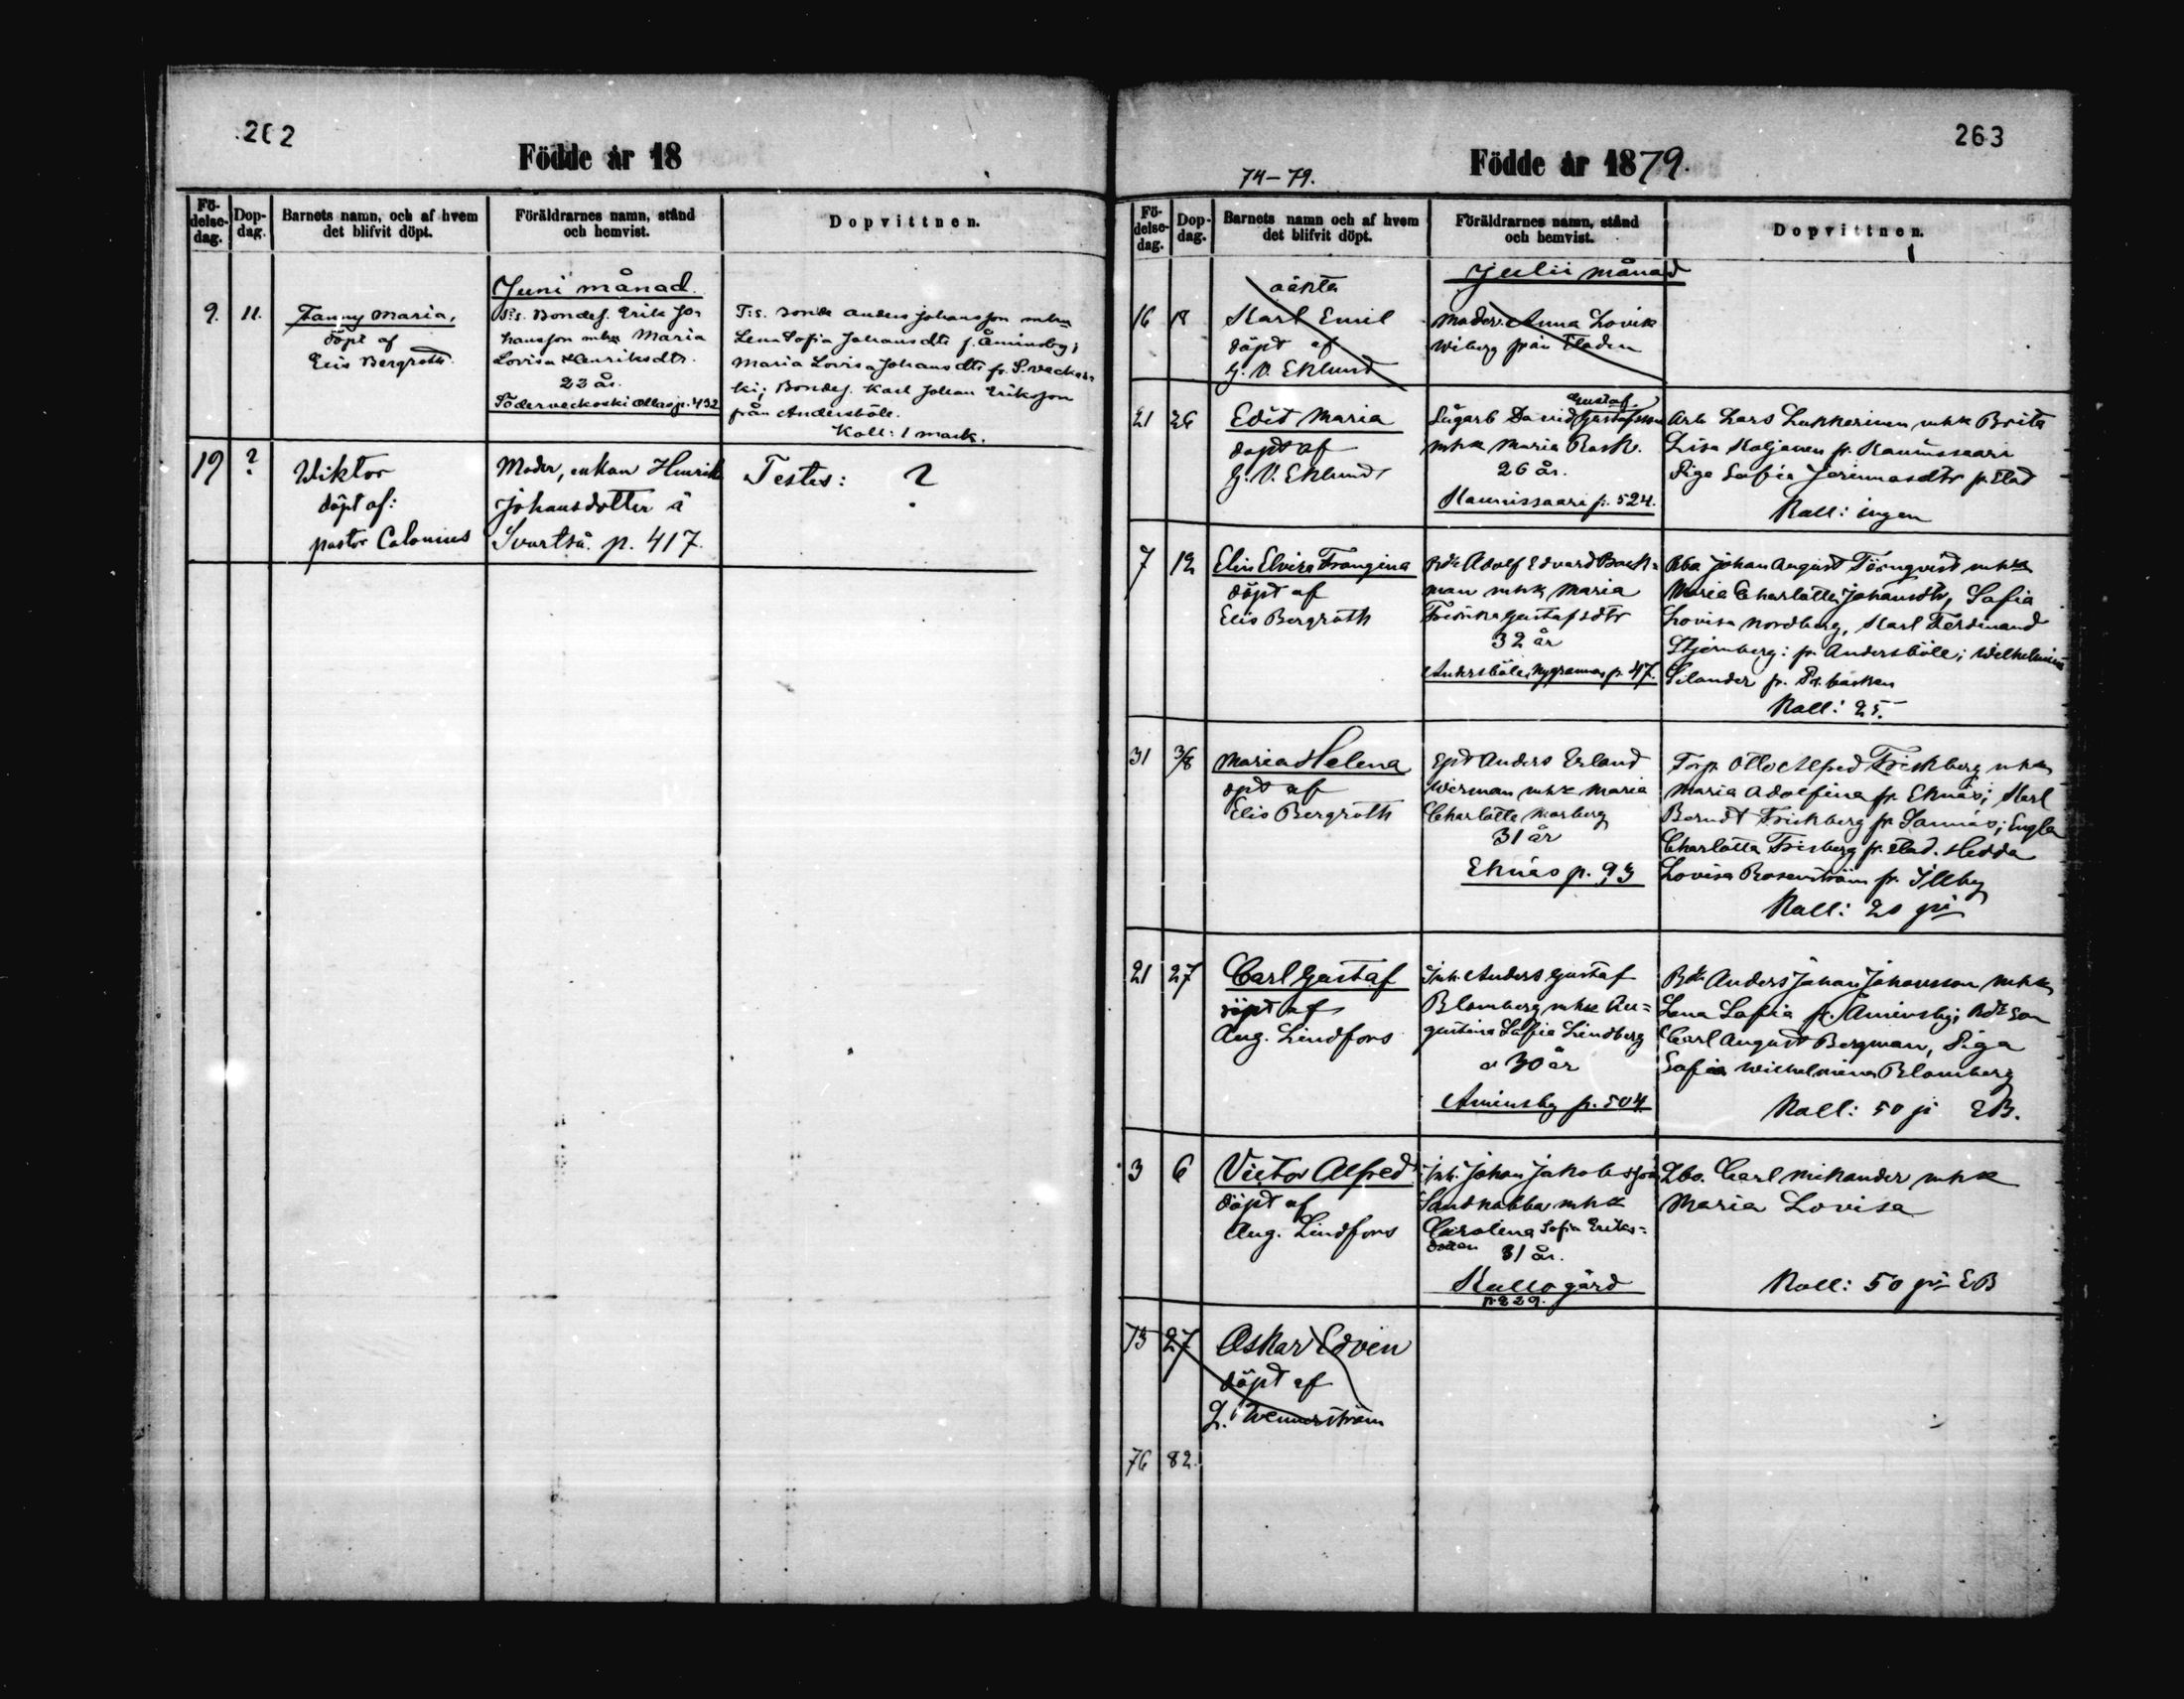 262
Födde år 18
Fö-
delse-
dag.
Dop-
dag.
Barnets namn, och af hvem
det blifvit döpt.
Föräldrarnes namn, stånd
och hemvist.
Dopvittnen.
Juni månad.
9. 11.
Fanny Maria,
döpt af
Elis Bergroth.
Bondes. Erik Jo-
hansson mhu Maria
Lovisa Henriksdtr.
23 år.
Söderveckoski p. 432
Bonde Anders Johansson mhu
Lena Sofia Johansdtr f. Åminsby;
Maria Lovisa Johansdtr fr. S. veckos-
ki; Bondes. Karl Johan Eriksson
från Andersböle.
Koll: 1 mark.
19 ?
Wiktor
döpt af:
pastor Calonius
Moder, enkan Henrik
Johansdotter å
Svartså. p. 417.
Testes: ?
263
Födde år 1879.
74–79.
Fö-
delse-
dag.
Dop-
dag.
Barnets namn och af hvem
det blifvit döpt.
Föräldrarnes namn, stånd
och hemvist.
Dopvittnen.
Julii månad
oäkta
16 18
Karl Emil
döpt af
G. V. Eklund
Moder: Anna Lovisa
Wiberg från Staden
21 26
Edit Maria
döpt af
G. V. Eklund
Gustaf
Sågarb David Gustafsson
mhk Maria Rask.
26 år.
Kaunissaari p. 524.
Arb Lars Lukkarinen mhk Brita
Lisa Kaljanen fr. Kaunissaari
Piga Sofia fr. Stad
Koll: ingen
7 12
Elin Elvira Frangina
döpt af
Elis Bergroth
Bde Adolf Edvard Back-
man mhk Maria
Fredrika Gustafsdtr
32 år
Andersböle, Nygrannas p. 47.
Johan August Törnqvist mhk
Maria Charlotta Johansdtr, Sofia
Lovisa Nordberg, Karl Ferdinand
Stjernberg: fr. Andersböle; Wilhelmina
Silander fr. backen
Koll: 25.
31 3/8
Maria Helena
dpt af
Elis Bergroth
Anders Erland
Werman mhk Maria
Charlotta Morberg
31 år
Eknäs p. 93
Torp. Otto Alfred Frickberg mhk
Maria Adolfina fr. Eknäs; Karl
Berndt Frickberg fr. Sannäs; Engla
Charlotta Frisberg fr. Stad. Hedda
Lovisa Rosenström fr. Illby
Koll: 20 pi
21 27
Carl Gustaf
döpt af
Aug. Lindfors
Inh. Anders Gustaf
Blomberg mhk Au-
gustina Sofia Lindberg
30 år
Aminsby p. 504
Bde Anders Johan Johansson mhk
Lena Sofia fr. Åminsby; Bde son
Carl August Bergman, Piga
Sofia Wilhelmina Blomberg
Koll: 50 pi EB.
3 6
Victor Alfred
döpt af
Aug. Lindfors
Inh. Johan Jakobsson
Sandnabba mhk
Carolina Sofia Eriks-
dotter 31 år.
Kullo gård
p. 229.
Carl Mikander mhk
Maria Lovisa
Koll: 50 pi EB
75 27
Oskar Edvin
döpt af
L. Wennerström
76 82.